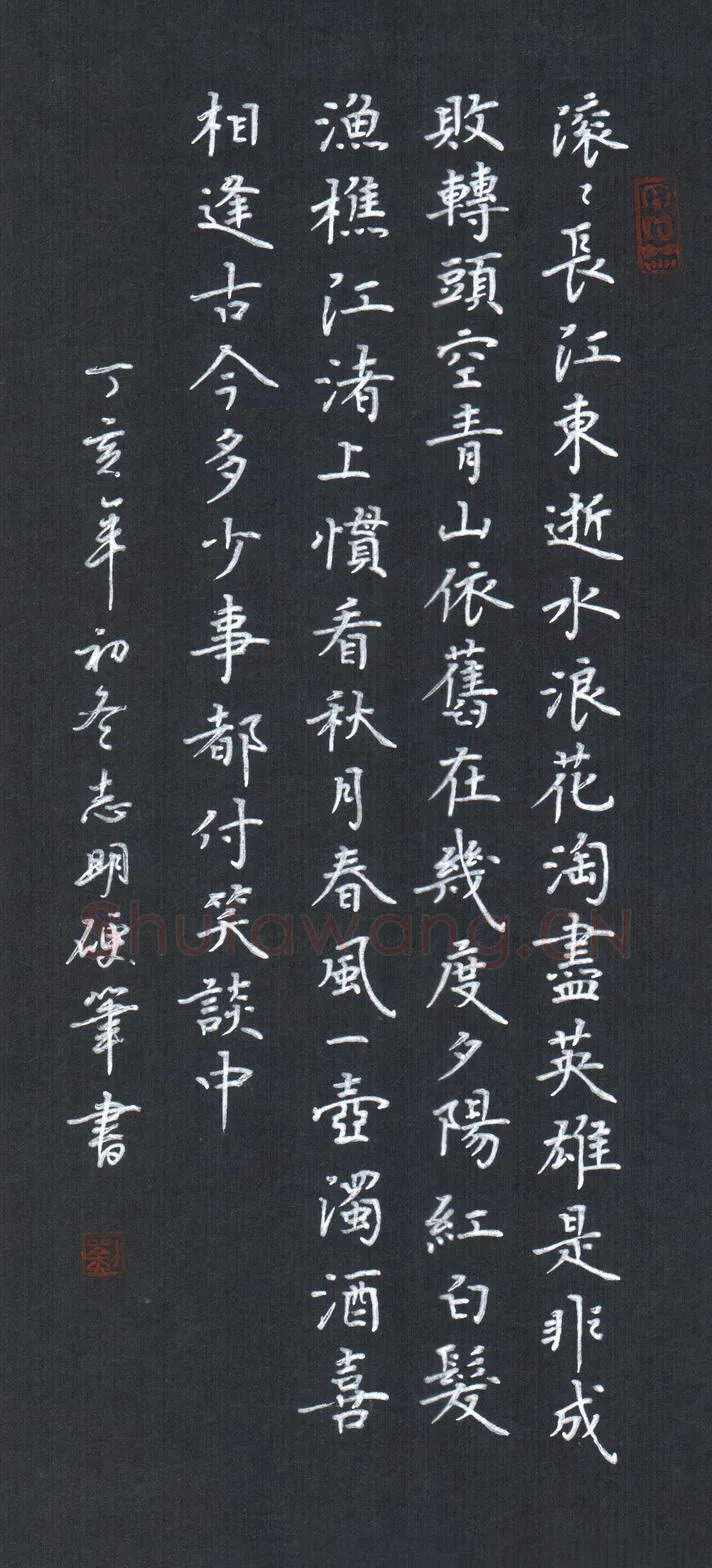 滚〻長江東逝水浪花淘盡英雄是非成
敗轉頭空青山依舊在幾度夕陽紅白髮
漁樵江渚上慣看秋月春風一壺濁酒喜
相逢古今多少事都付笑談中
丁亥年初冬志明硬筆書
Shufawang.CN